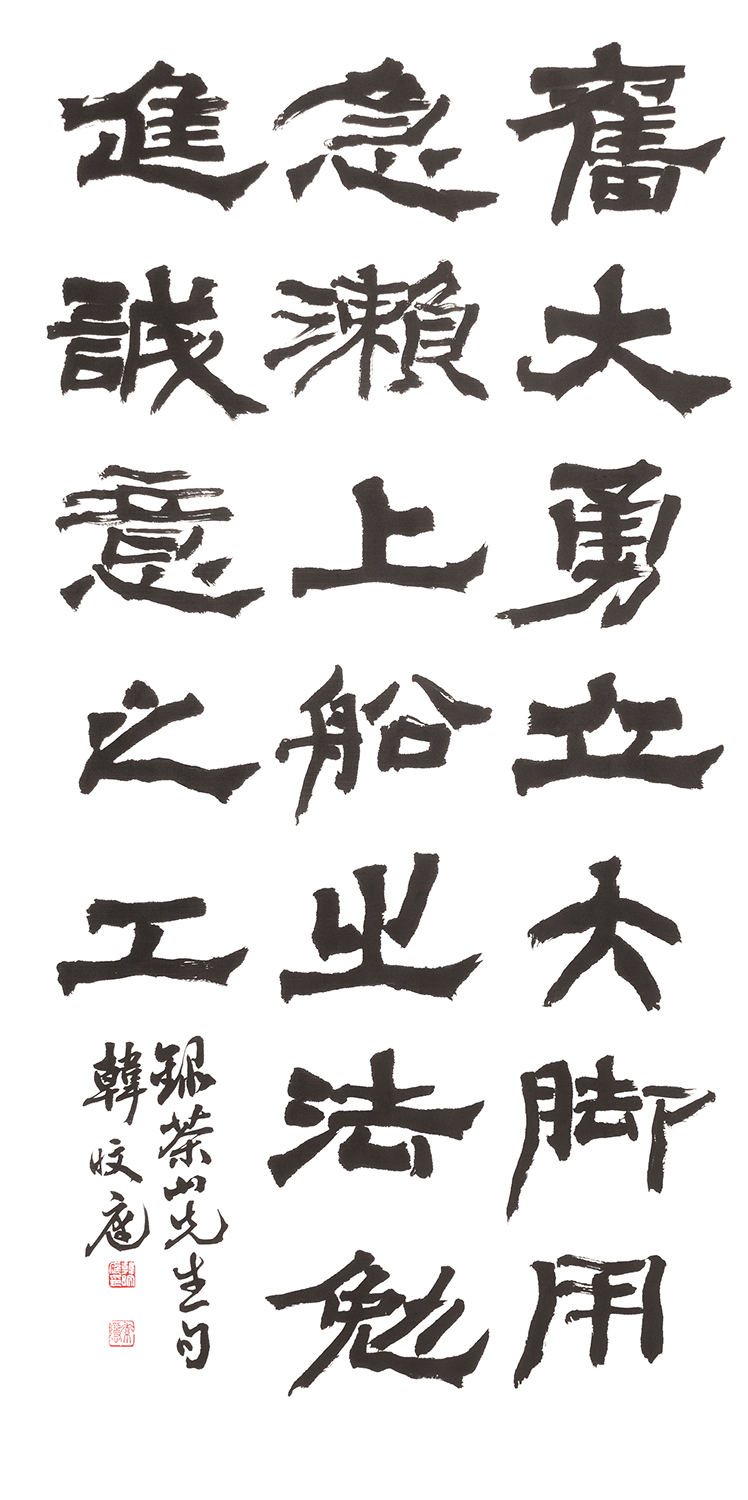 奮大勇立大脚用
急瀨上船之法勉
進誠意之工
錄茶山先生句
韓旼庭